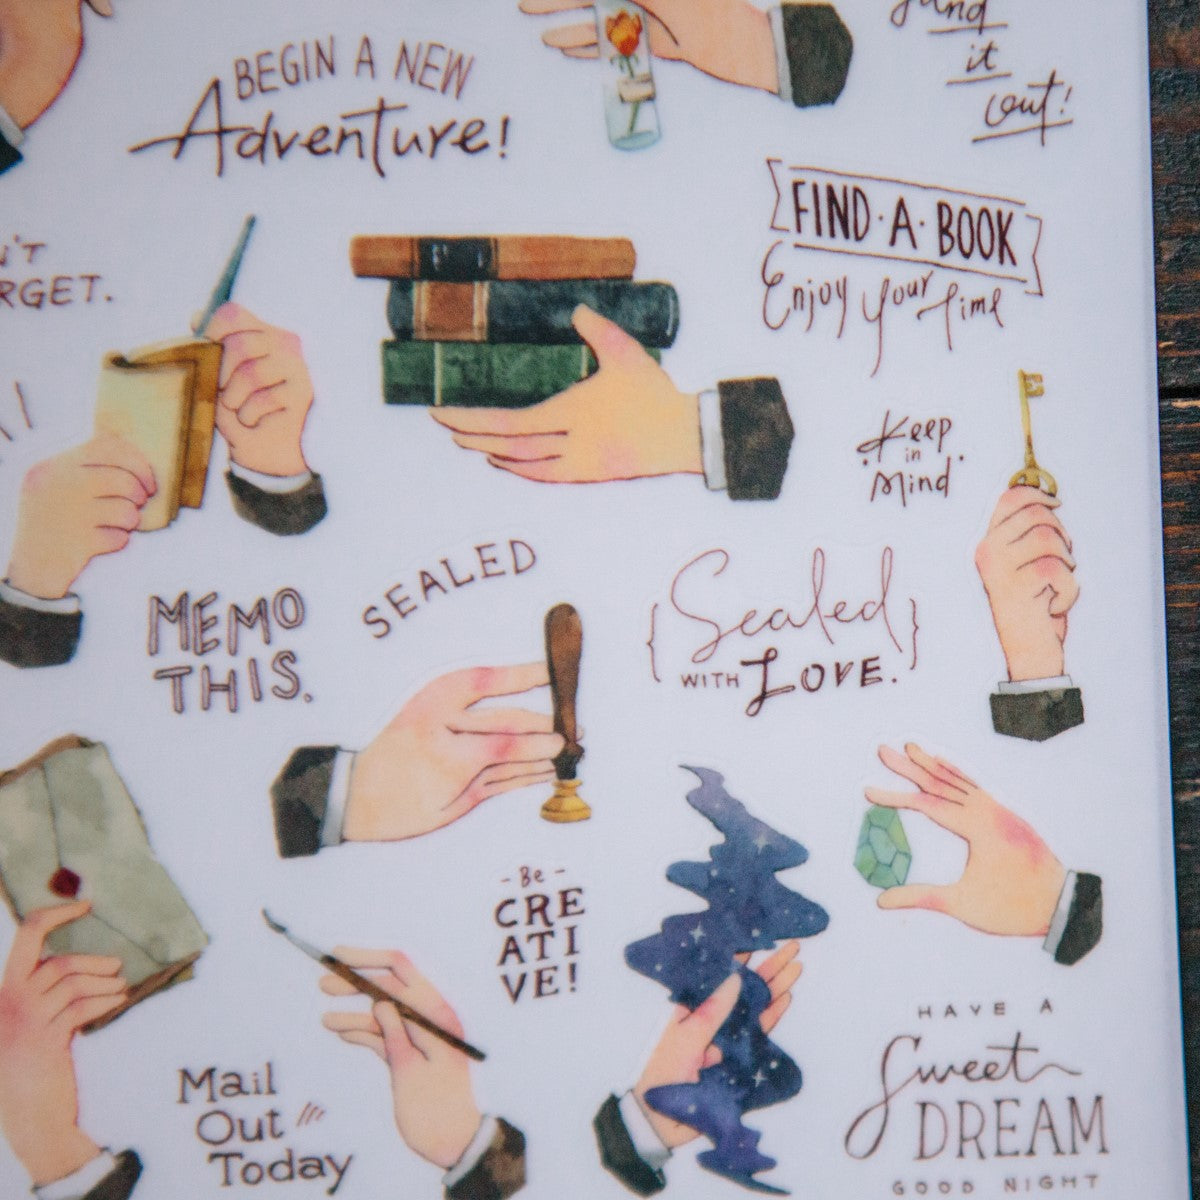 BEGIN A NEW
Adventure!
it
out!
FIND·A·BOOK
Enjoy your Time
Keep
in
Mind
MEMO
THIS.
SEALED
Sealed
WITH LOVE.
-Be-
CRE
ATI
VE!
Mail
Out
Today
HAVE A
Sweet
DREAM
GOOD NIGHT